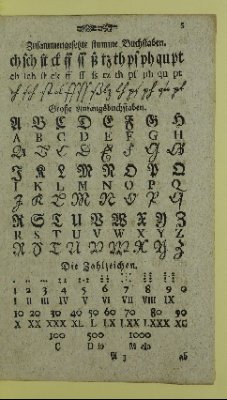 5
Zusammengesetzte stumme Buchstaben.
ch sch st ck ff ſſ ß tz th pf ph qu pt
ch ſch ſt ck ff ſſ ß tz th pf ph qu pt
Große Anfangsbuchstaben.
A B C D E F G H
A B C D E F G H
A B C D E F G H
I K L M N O P Q
I K L M N O P Q
J K L M N O P Q
R S T U V W X Y Z
R S T U V W X Y Z
R S T U V W X Y Z
Die Zahlzeichen.
1 2 3 4 5 6 7 8 9 0
I II III IV V VI VII VIII IX
10 20 30 40 50 60 70 80 90
X XX XXX XL L LX LXX LXXX XC
100 500 1000
C D
A 3
ab